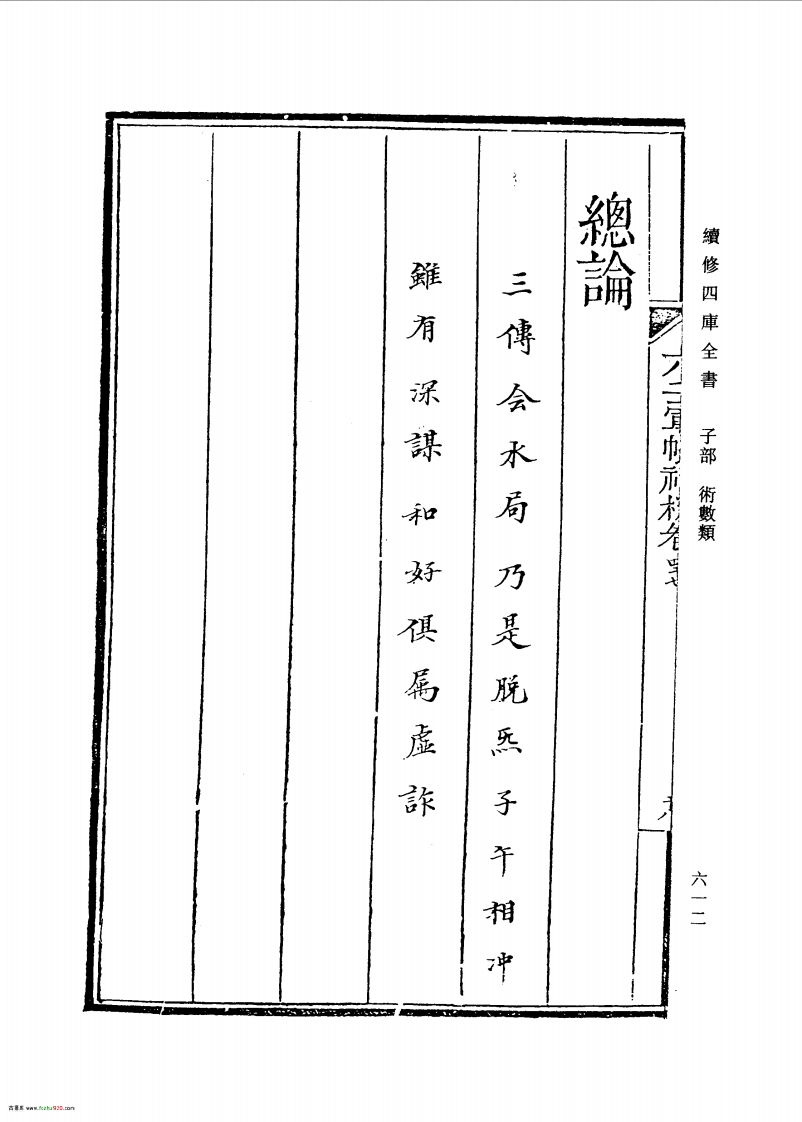 續修四庫全書 子部 術數類
六一二
總論
三傳会水局乃是脫炁子午相冲
雖有深謀和好俱属虛詐
古易庫 www.fczhu920.com